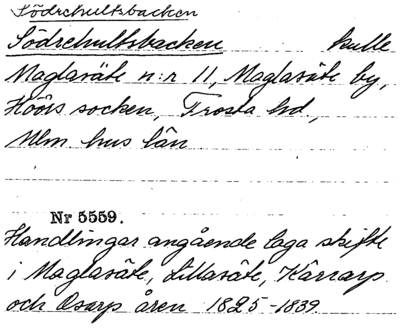 Södrehultsbacken
Södrehultsbacken kulle
Maglasäte n:r 11, Maglasäte by,
Höörs socken, Frosta hd,
Mlm hus län
Nr 5559.
Handlingar angående laga skifte
i Maglasäte, Lillasäte, Kärrarp
och Osarp åren 1825-1839.